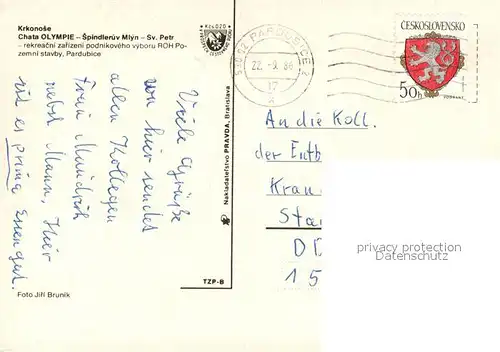 Krkonoše
Chata OLYMPIE – Špindlerův Mlýn – Sv. Petr
– rekreační zařízení podnikového výboru ROH Po-
zemní stavby, Pardubice
Viele Grüße
von hier sendet
allen Kollegen
Frau
nebst Mann, Hier
ist es prima
Foto Jiří Bruník
Nakladatelstvo PRAVDA, Bratislava
TZP-B
KRNAP
530 02 PARDUBICE 2
22. -9. 86
17
ČESKOSLOVENSKO
50h
An die Koll.
der Entb
Kran
Sta
DD
15
privacy protection
Datenschutz